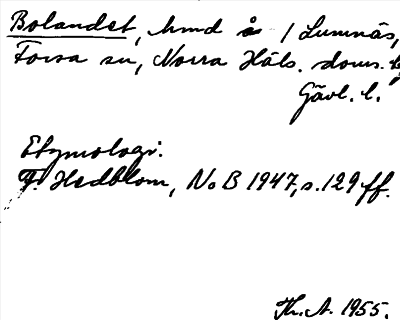 Bolandet, hmd å / Lumnäs,
Forsa sn, Norra Häls. doms.
Gävl. l.
Etymologi.
F. Hedblom, NoB 1947, s. 129 ff.
Th. A. 1955.